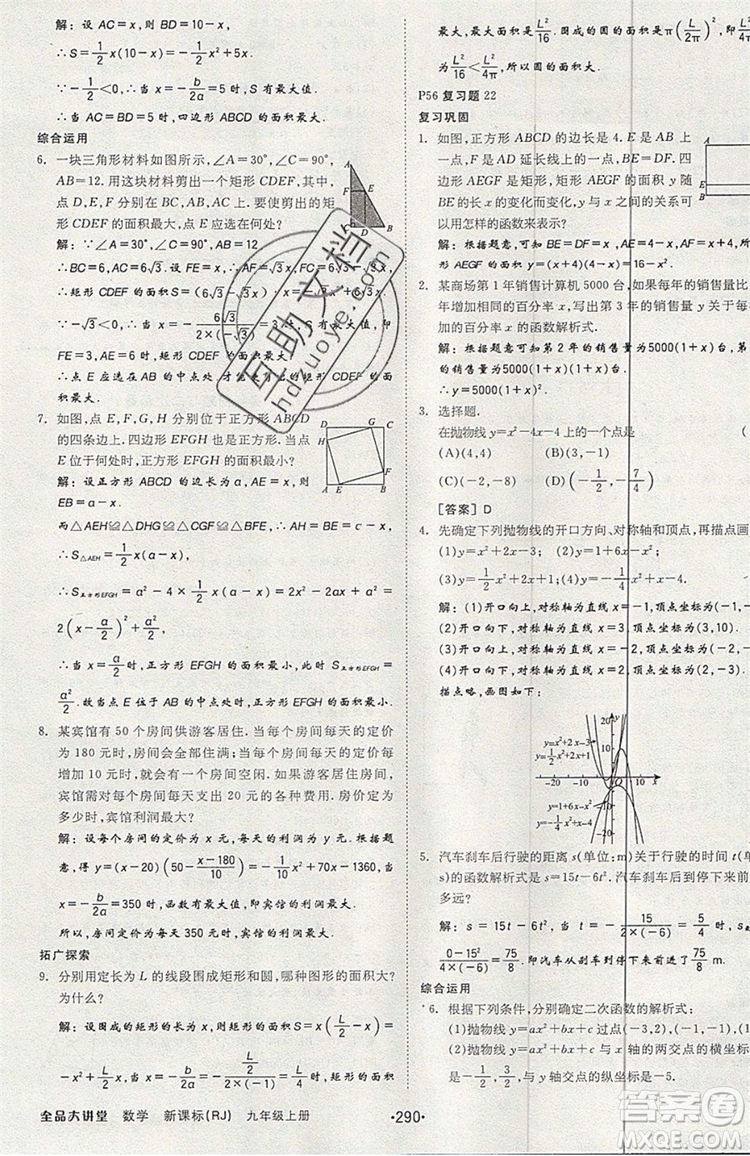 解：设 AC=x，则 BD=10-x，
∴S=1/2x(10-x)=-1/2x²+5x.
∵-1/2<0，∴当 x=-b/2a=5 时，S 有最大值.
∴当 AC=BD=5 时，四边形 ABCD 的面积最大.
综合运用
6. 一块三角形材料如图所示，∠A=30°，∠C=90°，
AB=12. 用这块材料剪出一个矩形 CDEF，其中，
点 D，E，F 分别在 BC，AB，AC 上. 要使剪出的
矩形 CDEF 的面积最大，点 E 应选在何处？
解：∵∠C=90°，∠A=30°，
∴BC=6，AC=6√3. 设
∴矩形 CDEF 的面积 S=(6√3-√3x)x=-√3x²+6√3x.
∵-√3<0，∴当 x=-6√3/2×(-√3)=3 时，S 最大，
FE=3，矩形 CDEF 的面积最大.
∴点 E 应选在 AB 的中点处，才能使剪出的矩形 CDEF
面积最大.
7. 如图，点 E，F，G，H 分别位于正方形 ABCD
的四条边上. 四边形 EFGH 也是正方形. 当点 E
位于何处时，正方形 EFGH 的面积最小？
解：设正方形 ABCD 的边长为 a，AE=x，则
EB=a-x.
而△AEH≌△DHG≌△CGF≌△BFE，
∴S△AEH=1/2x(a-x).
∴S正方形EFGH=a²-4×1/2x(a-x)=2x²-2ax+a²=
2(x-a/2)²+a²/2.
∴当 x=a/2时，正方形 EFGH 的面积最小，S正方形EFGH=
a²/2. 故当点 E 位于 AB 的中点处时，正方形 EFGH 的面积最小.
8. 某宾馆有 50 个房间供游客居住. 当每个房间每天的定价
为 180 元时，房间会全部住满；当每个房间每天的定价每
增加 10 元时，就会有一个房间空闲. 如果游客居住房间，
宾馆需对每个房间每天支出 20 元的各种费用. 房价定为
多少时，宾馆利润最大？
解：设每个房间的定价为 x 元，每天的利润为 y 元. 根据题
意，得 y=(x-20)(50-x-180/10)=-1/10x²+70x-1360，当
x=-b/2a=350 时，函数有最大值，即宾馆的利润最大.
所以，房间定价为 350 元时，宾馆的利润最大.
拓广探索
9. 分别用定长为 L 的线段围成矩形和圆，哪种图形的面积大？
为什么？
解：如果设围成的矩形的长为 x，则矩形面积 S=x(L/2-x)=
全品大讲堂 数学 新课标(RJ) 九年级上册
·290·
最大，最大面积为L²/16，而圆的面积是π(L/2π)²=
L²/16<L²/4π，所以圆的面积大.
P56 复习题 22
复习巩固
1. 如图，正方形 ABCD 的边长是 4. E 是 AB 上
一点，F 是 AD 延长线上的一点，BE=DF. 四
边形 AEGF 是矩形，矩形 AEGF 的面积 y 随
BE 的长 x 的变化而变化，y 与 x 之间的关系可
以用怎样的函数来表示？
解：根据题意，可知 BE=DF=x，所以
形 AEGF 的面积 y=(4-x)(4+x)=16-x².
2. 某商场第 1 年销售计算机 5000 台，如果每年的销售量
年增加相同的百分率 x，写出第 3 年的销售量 y
加的百分率 x 的函数解析式.
解：根据题意，可知第 2 年的销售量为5000(1+x)
销售量为5000(1+x)(1+x).
∴y=5000(1+x)².
3. 选择题.
在抛物线 y=x²-4x-4 上的一个点是
(A)(4,4) (D)(-1/2,-7/4)
[答案] D
4. 先确定下列抛物线的开口方向、对称轴和顶点，再描点画
(1)y=x²+2x-3； (2)y=1+6x-x²；
解：(1)开口向上，对称轴为直线 x=-1，顶点坐标为(-1,
(2)开口向下，对称轴为直线 x=3，顶点坐标为(3,10).
描点略，画图如下：
y=x²+2x-3
y=1+6x-x²
5. 汽车刹车后行驶的距离 s(单位：m)关于行驶的时间 t(
s)的函数解析式是 s=15t-6t². 汽车刹车后到停下来
多远？
解：s=15t-6t²，当 t=-15/2×(-6)=
0-15²/4×(-6)=75/8，即汽车从刹车到停下来前进了75/8 m.
综合运用
6. 根据下列条件，分别确定二次函数的解析式：
(1)抛物线 y=ax²+bx+c 过点(-3,2)，(-1,-1)，(
(2)抛物线 y=ax²+bx+c 与 x 轴的两交点的横坐标
，与 y 轴交点的纵坐标是-5.
互助文档
hdzuoye.com
答案圈
MXQE.COM